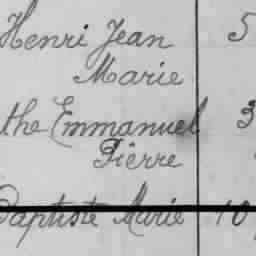 Henri Jean 5
Marie
the Emmanuel 3
Pierre
Baptiste Marie 10